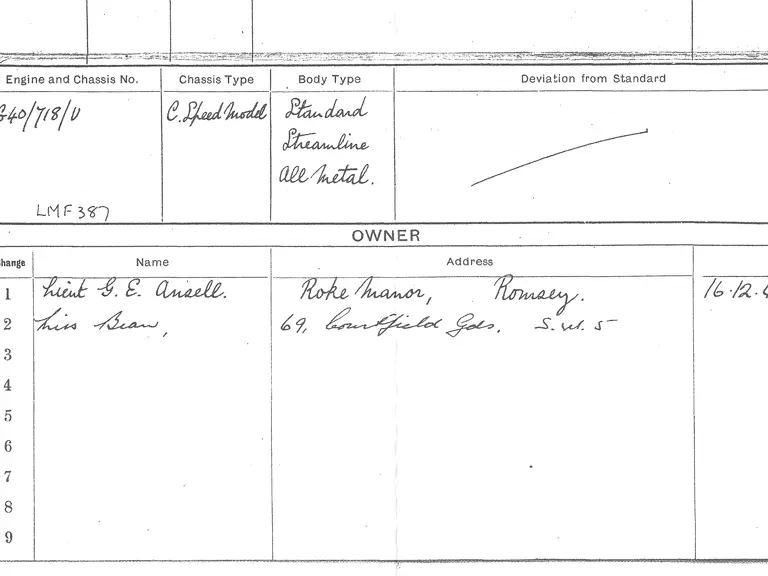 Engine and Chassis No. Chassis Type Body Type Deviation from Standard
G40/718/U C. Speed Model Standard
Streamline
All Metal.
LMF 387
OWNER
hange Name Address
1 Lieut G. E. Ansell. Roke Manor, Romsey. 16.12.4
2 Miss Bean, 69, Courtfield Gds. S.W.5
3
4
5
6
7
8
9